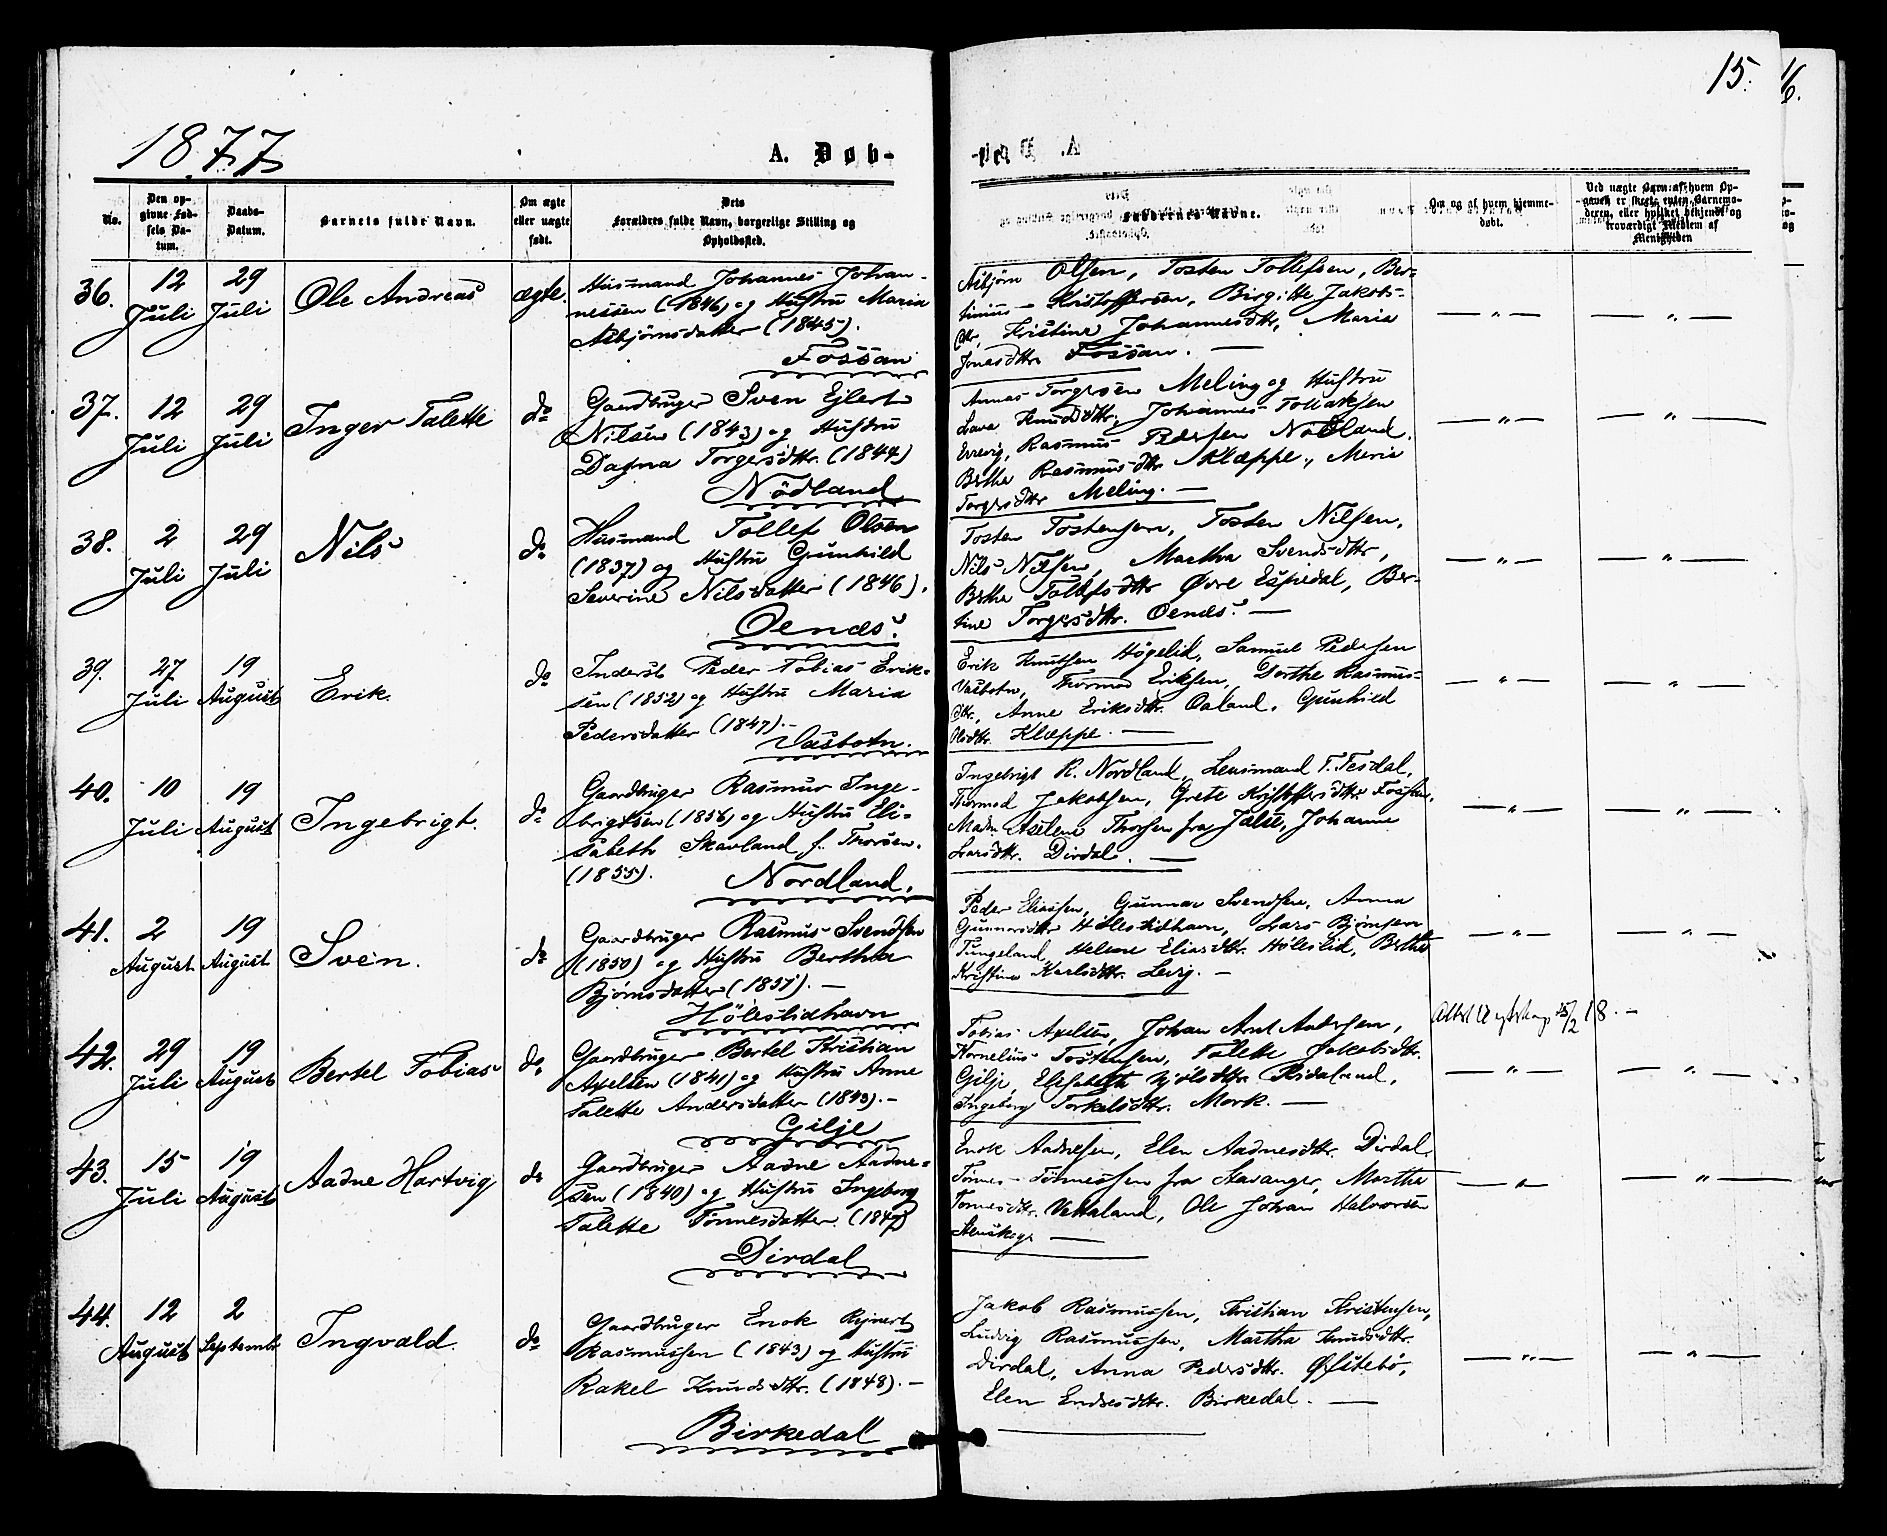 15.
16.
1877
A. Døb-
No.
Den op-
givne Fød-
sels Da-
tum.
Daabs-
Datum.
Barnets fulde Navn.
Om ægte
eller uægte
født.
Dets
Forældres fulde Navn, borgerlige Stilling og
Opholdssted.
Faddernes Navne.
Om og af hvem hjemme-
døbt.
Ved uægte Børn: af hvem Op-
gaven er skeet, enten Barnemo-
deren, eller hvilket bekjendt og
troværdigt Medlem af
Menigheden
36.
12
Juli
29
Juli
Ole Andreas
ægte.
Husmand Johannes Johan-
nessen (1846) og Hustru Maria
Asbjørnsdatter (1845).
Fossan
Asbjørn Olsen, Tosten Tollefsen, Ber-
tinius Kristoffersen, Birgitte Jakobs-
dtr, Kristine Johannesdtr, Maria
Jonasdtr Fossan. —
— „ —
— „ —
37.
12
Juli
29
Juli
Inger Talette
do
Gaardbruger Sven Ejlert
Nilsen (1843) og Hustru
Dagna Torgersdtr. (1844)
Nödland
Torgersen Meling og Hustru
Knudsdtr, Johannes Tollaksen
Rasmus Pedersen Nödland,
Berthe Rasmusdtr Klæppe, Maria
Torgersdtr Meling. —
— „ —
— „ —
38.
2
Juli
29
Juli
Nils
do
Husmand Tollef Olsen
(1837) og Hustru Gunhild
Severine Nilsdatter (1846).
Oenæs.
Tosten Tostensen, Tosten Nilsen,
Nils Nilsen, Martha Svendsdtr,
Berthe Tollefsdtr Øvre Espedal, Ber-
tine Torgersdtr. Oenæs. —
— „ —
— „ —
39.
27
Juli
19
August
Erik.
do
Inderst Peder Tobias Erik-
sen (1852) og Hustru Maria
Pedersdatter (1847). —
Vasbotn.
Erik Knutsen Högelid, Samuel Pedersen
Vasbotn, Thormod Eriksen, Dorthe Rasmus-
dtr, Anne Eriksdtr. Oaland, Gunhild
Olsdtr. Klæppe. —
— „ —
— „ —
40.
10
Juli
19
August
Ingebrigt.
do
Gaardbruger Rasmus Inge-
brigtsen (1856) og Hustru Eli-
sabeth Skavland f. Thorsen.
(1855).
Nordland.
Ingebrigt R. Nordland, Lensmand T. Tesdal,
Thormod Jakobsen, Grete Kristoffersdtr. Fossan,
Madm Axeline Thorsen fra Jelse, Johanne
Larsdtr. Dirdal. —
— „ —
— „ —
41.
2
August
19
August
Sven.
do
Gaardbruger Rasmus Svendsen
(1850) og Hustru Bertha
Bjørnsdatter (1851). —
Höleslidhavn
Peder Eliassen, Gunnar Svendsen, Anna
Gunnarsdtr Höleslidhavn, Lars Bjørnsen
Tungeland, Helene Eliasdtr. Höleslid, Berthe
Kristine Karlsdtr. Levig. —
— „ —
— „ —
42.
29
Juli
19
August
Bertel Tobias
do
Gaardbruger Bertel Kristian
Axelsen (1841) og Hustru Anne
Talette Andersdatter (1843). —
Gilje
Tobias Axelsen, Johan Arnt Andersen,
Kornelius Tostensen, Talette Jakobsdtr.
Gilje, Elisabeth
Ingeborg Torkelsdtr. Mork. —
15/2 18. —
— „ —
— „ —
43.
15
Juli
19
August
Aadne Hartvig
do
Gaardbruger Aadne Aadne-
sen (1840) og Hustru Ingeborg
Talette Tönnesdatter. (1847)
Dirdal
Enok Aadnesen, Elen Aadnesdtr. Dirdal,
Tönnes Tönnessen fra Stavanger, Martha
Tönnesdtr. Vatteland, Ole Johan Halvorsen
Stenskog. —
— „ —
— „ —
44.
12
August
2
Septembr
Ingvald.
do
Gaardbruger Enok Rejnert
Rasmussen (1843) og Hustru
Rakel Knudsdtr. (1848). —
Birkedal
Jakob Rasmussen, Kristian Kristensen,
Ludvig Rasmussen, Martha Knudsdtr.
Dirdal, Anna Pedersdtr. Øfstebö,
Elen Endresdtr. Birkedal. —
— „ —
— „ —